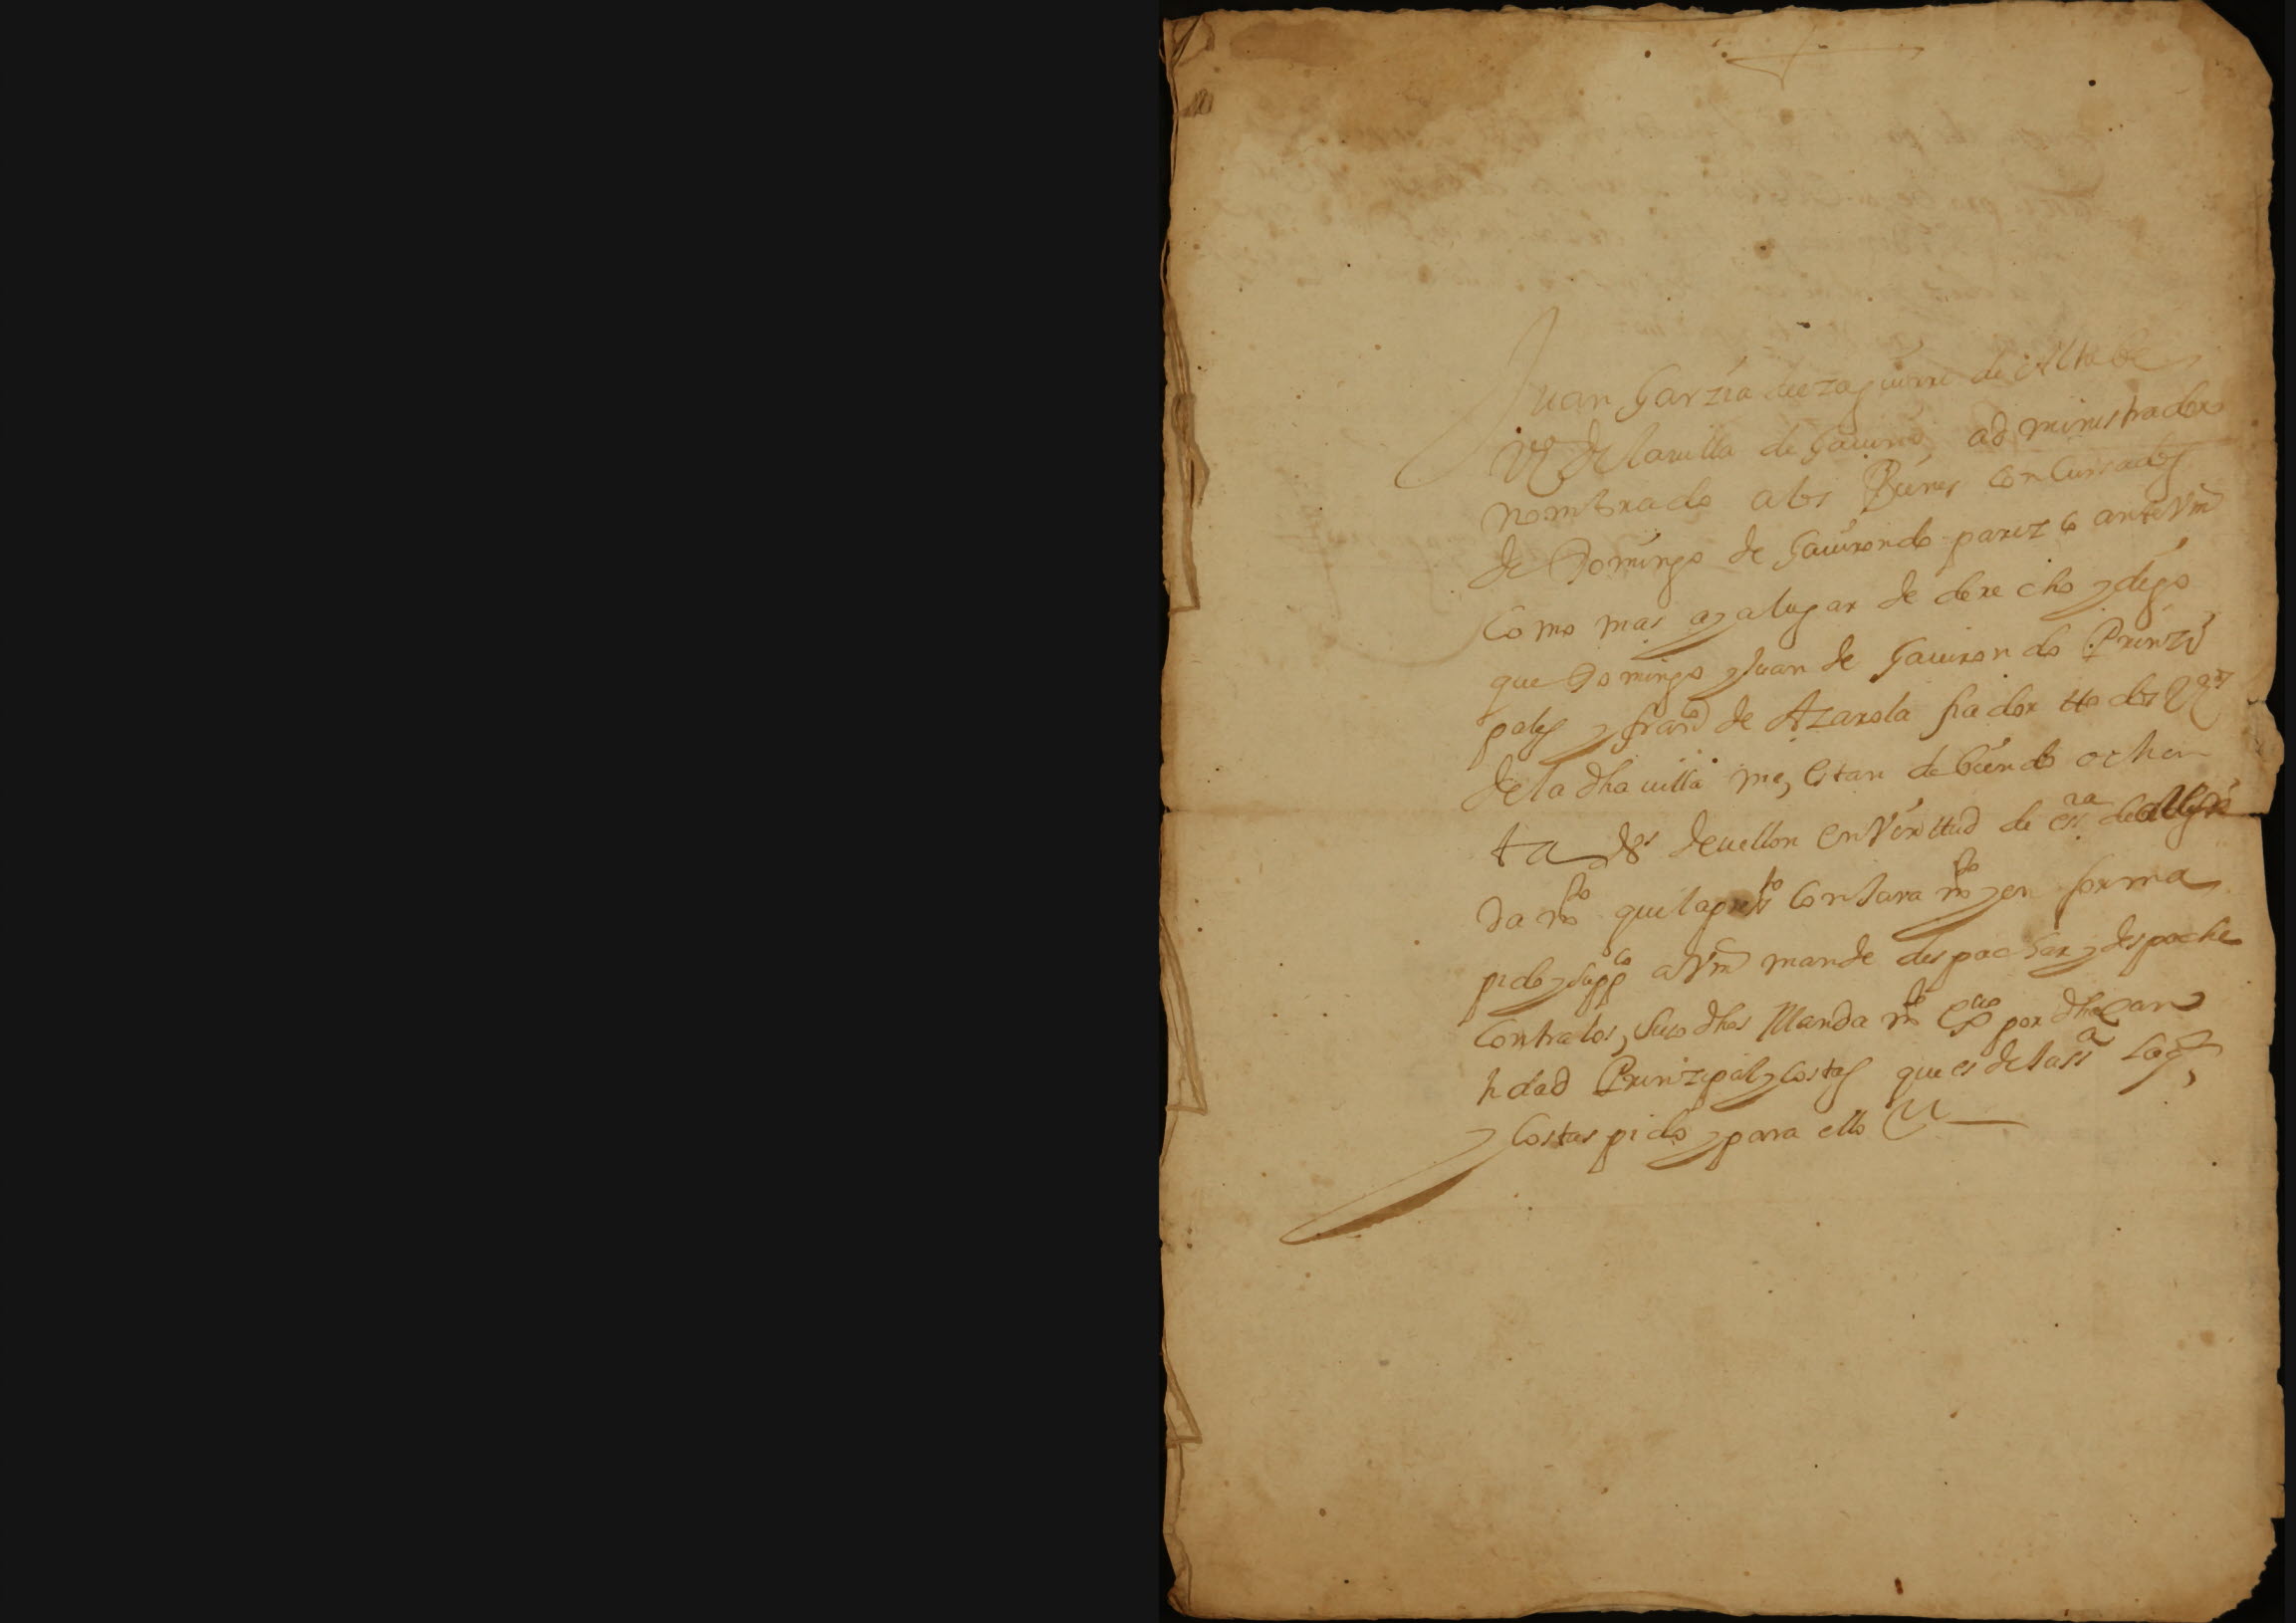 Juan Garzia de ezaguirre de Altube
Vº de la villa de Gauiria administrador
nombrado a los Bienes concursados
de Domingo de Gauirondo parezco ante Vm
como mas aya lugar de derecho y digo
que Domingo y Juan de Gauirondo Prinzi
pales y franco de Azarola fiador ttodos Vos
de la dha uilla me, estan debiendo ochen
ta ds de uellon en Virttud de essra de
da mto que la presto con Jura mto y en forma
pido y suppco a Vm mande despachar y despache
contra los, suso dhos Manda mto exuo por dha can
tidad Prinzipal y costas que es de Jussa la qe,
y costas pido y para ello Va